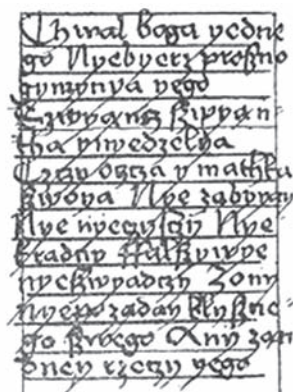 Chwal boga yedne
go Nyebyerz proszno
gymyenya yego
szwyan
tha ynyedzelya
Czczy oszcza y mathka
szwoya Nye zabyyay
Nye Nye
kradny ffalszywye
nyeszwyadczy Zony
nyepozaday blyszne
go szwego Any zad
dney rzeczy yego